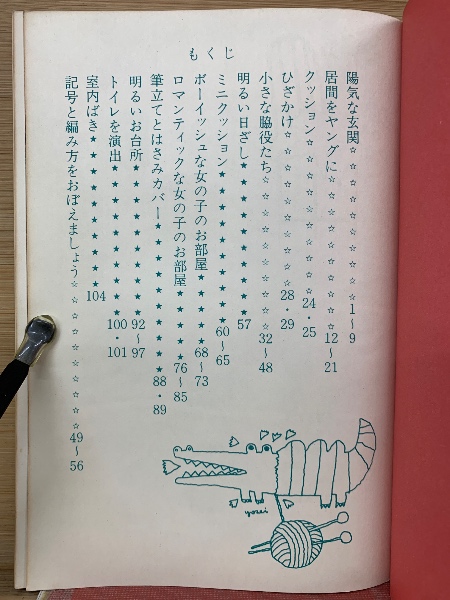 もくじ
陽気な玄関☆☆☆☆☆☆☆☆☆☆1〜9
居間をヤングに☆☆☆☆☆☆☆☆☆☆12〜21
クッション☆☆☆☆☆☆☆☆☆☆24・25
ひざかけ☆☆☆☆☆☆☆☆☆☆28・29
小さな脇役たち☆☆☆☆☆☆☆☆☆☆32〜48
明るい日ざし★★★★★★★★★★57
ミニクッション★★★★★★★★★★60〜65
ボーイッシュな女の子のお部屋★★★★★68〜73
ロマンティックな女の子のお部屋★★★★★76〜85
筆立てとはさみカバー★★★★★★★★★★88・89
明るいお台所★★★★★★★★★★92〜97
トイレを演出★★★★★★★★★★100・101
室内ばき★★★★★★★★★★104
記号と編み方をおぼえましょう☆☆☆☆☆☆☆☆☆☆49〜56
yosei